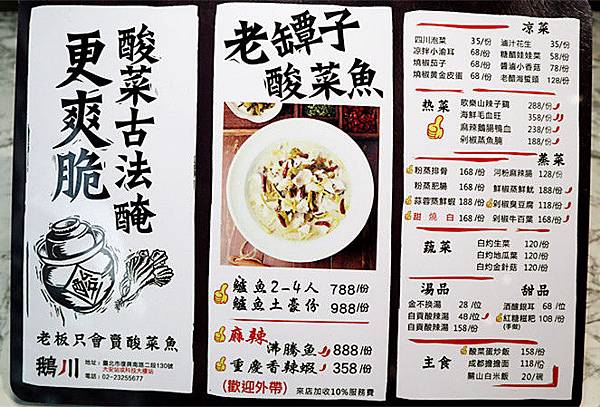 酸菜古法醃
更爽脆
老板只會賣酸菜魚
鵝川
地址：臺北市復興南路二段130號
大安站或科技大樓站
電話：02-23255677
老罈子
酸菜魚
鱸魚2-4人 788/份
鱸魚土豪份 988/份
麻辣
沸騰魚 888/份
重慶香辣蝦 358/份
(歡迎外帶)
來店加收10%服務費
凉菜
四川泡菜 35/份
滷汁花生 35/份
凉拌小渝耳 68/份
糖醋娃娃菜 58/份
燒椒茄子 68/份
醬滷小香菇 78/份
燒椒黃金皮蛋 68/份
老醋海蜇頭 128/份
热菜
歌樂山辣子鷄 288/份
海鮮毛血旺 358/份
麻辣鵝腸鴨血 238/份
剁椒蒸魚腩 188/份
蒸菜
粉蒸排骨 168/份
河粉麻辣腸 128/份
粉蒸肥腸 168/份
鮮椒蒸鮮魷 188/份
蒜蓉蒸鮮蝦 188/份
剁椒臭豆腐 118/份
甜燒白 168/份
剁椒牛百葉 168/份
蔬菜
白灼生菜 120/份
白灼地瓜葉 120/份
白灼金針菇 120/份
湯品
金不換湯 28/位
自貢酸辣湯 48/位
自貢酸辣湯 158/份
甜品
酒釀銀耳 68/份
紅糖糍粑 108/份
(手做)
主食
酸菜蛋炒飯 158/份
成都擔擔面 118/份
關山白米飯 20/碗